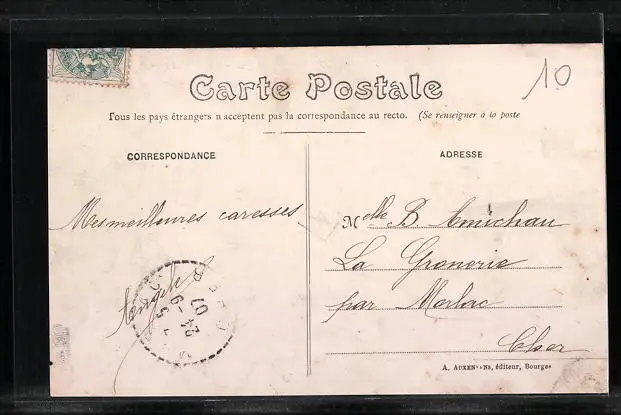 10
Carte Postale
Tous les pays étrangers n'acceptent pas la correspondance au recto. (Se renseigner à la poste
CORRESPONDANCE
ADRESSE
Mes meilleures caresses
Melle B
La
par Morlac
Cher
24 - 9
07
A. AUXENFANS, éditeur, Bourges